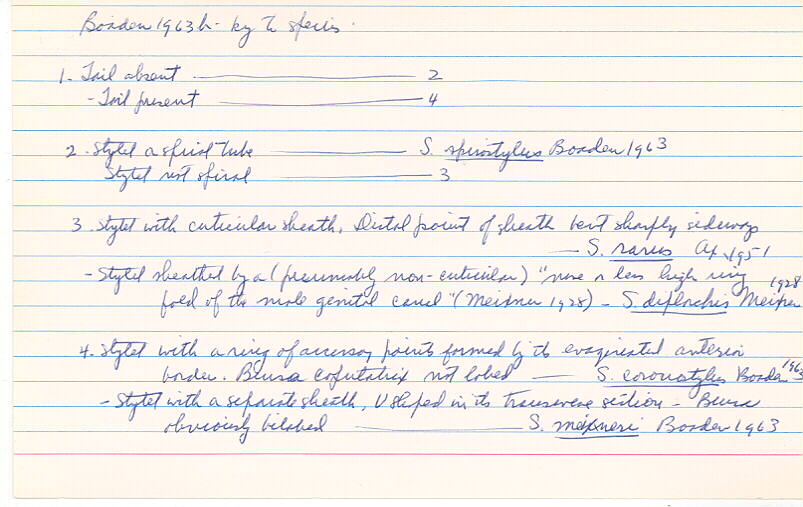 Boaden 1963b - key to species.
1. Tail absent ——— 2
- Tail present ——— 4
2. Stylet a spiral tube ——— S. spirostylus Boaden 1963
Stylet not spiral ——— 3
3. Stylet with cuticular sheath, Distal point of sheath bent sharply sideways
— S. rarus Ax 1951
- Stylet sheathed by a (presumably non-cuticular) "more or less high ring
fold of the male genital canal" (Meixner 1928) - S. diplorchis Meixner 1928
4. Stylet with a ring of accessory points formed by its evaginated anterior
border. Bursa copulatrix not lobed — S. coronostylus Boaden 1963
- Stylet with a separate sheath, U shaped in its transverse section - Bursa
obviously bilobed ——— S. meixneri Boaden 1963